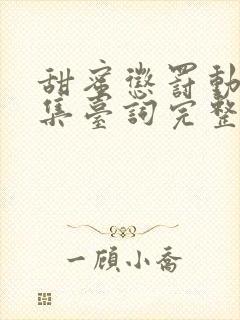 甜蜜懲罰動
集臺詞完整
一顧小喬